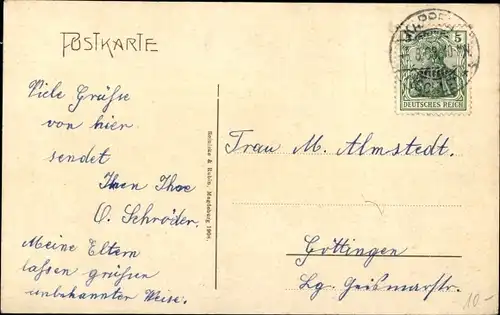 POSTKARTE
Viele Grüsse
von hier
sendet
Ihnen Ihre
O. Schröder.
Meine Eltern
lassen grüssen
unbekannter Weise.
Schlicke & Rubin, Magdeburg 1904.
5
DEUTSCHES REICH
Frau M. Almstedt.
Göttingen
Lg. Geißmarstr.
10.-